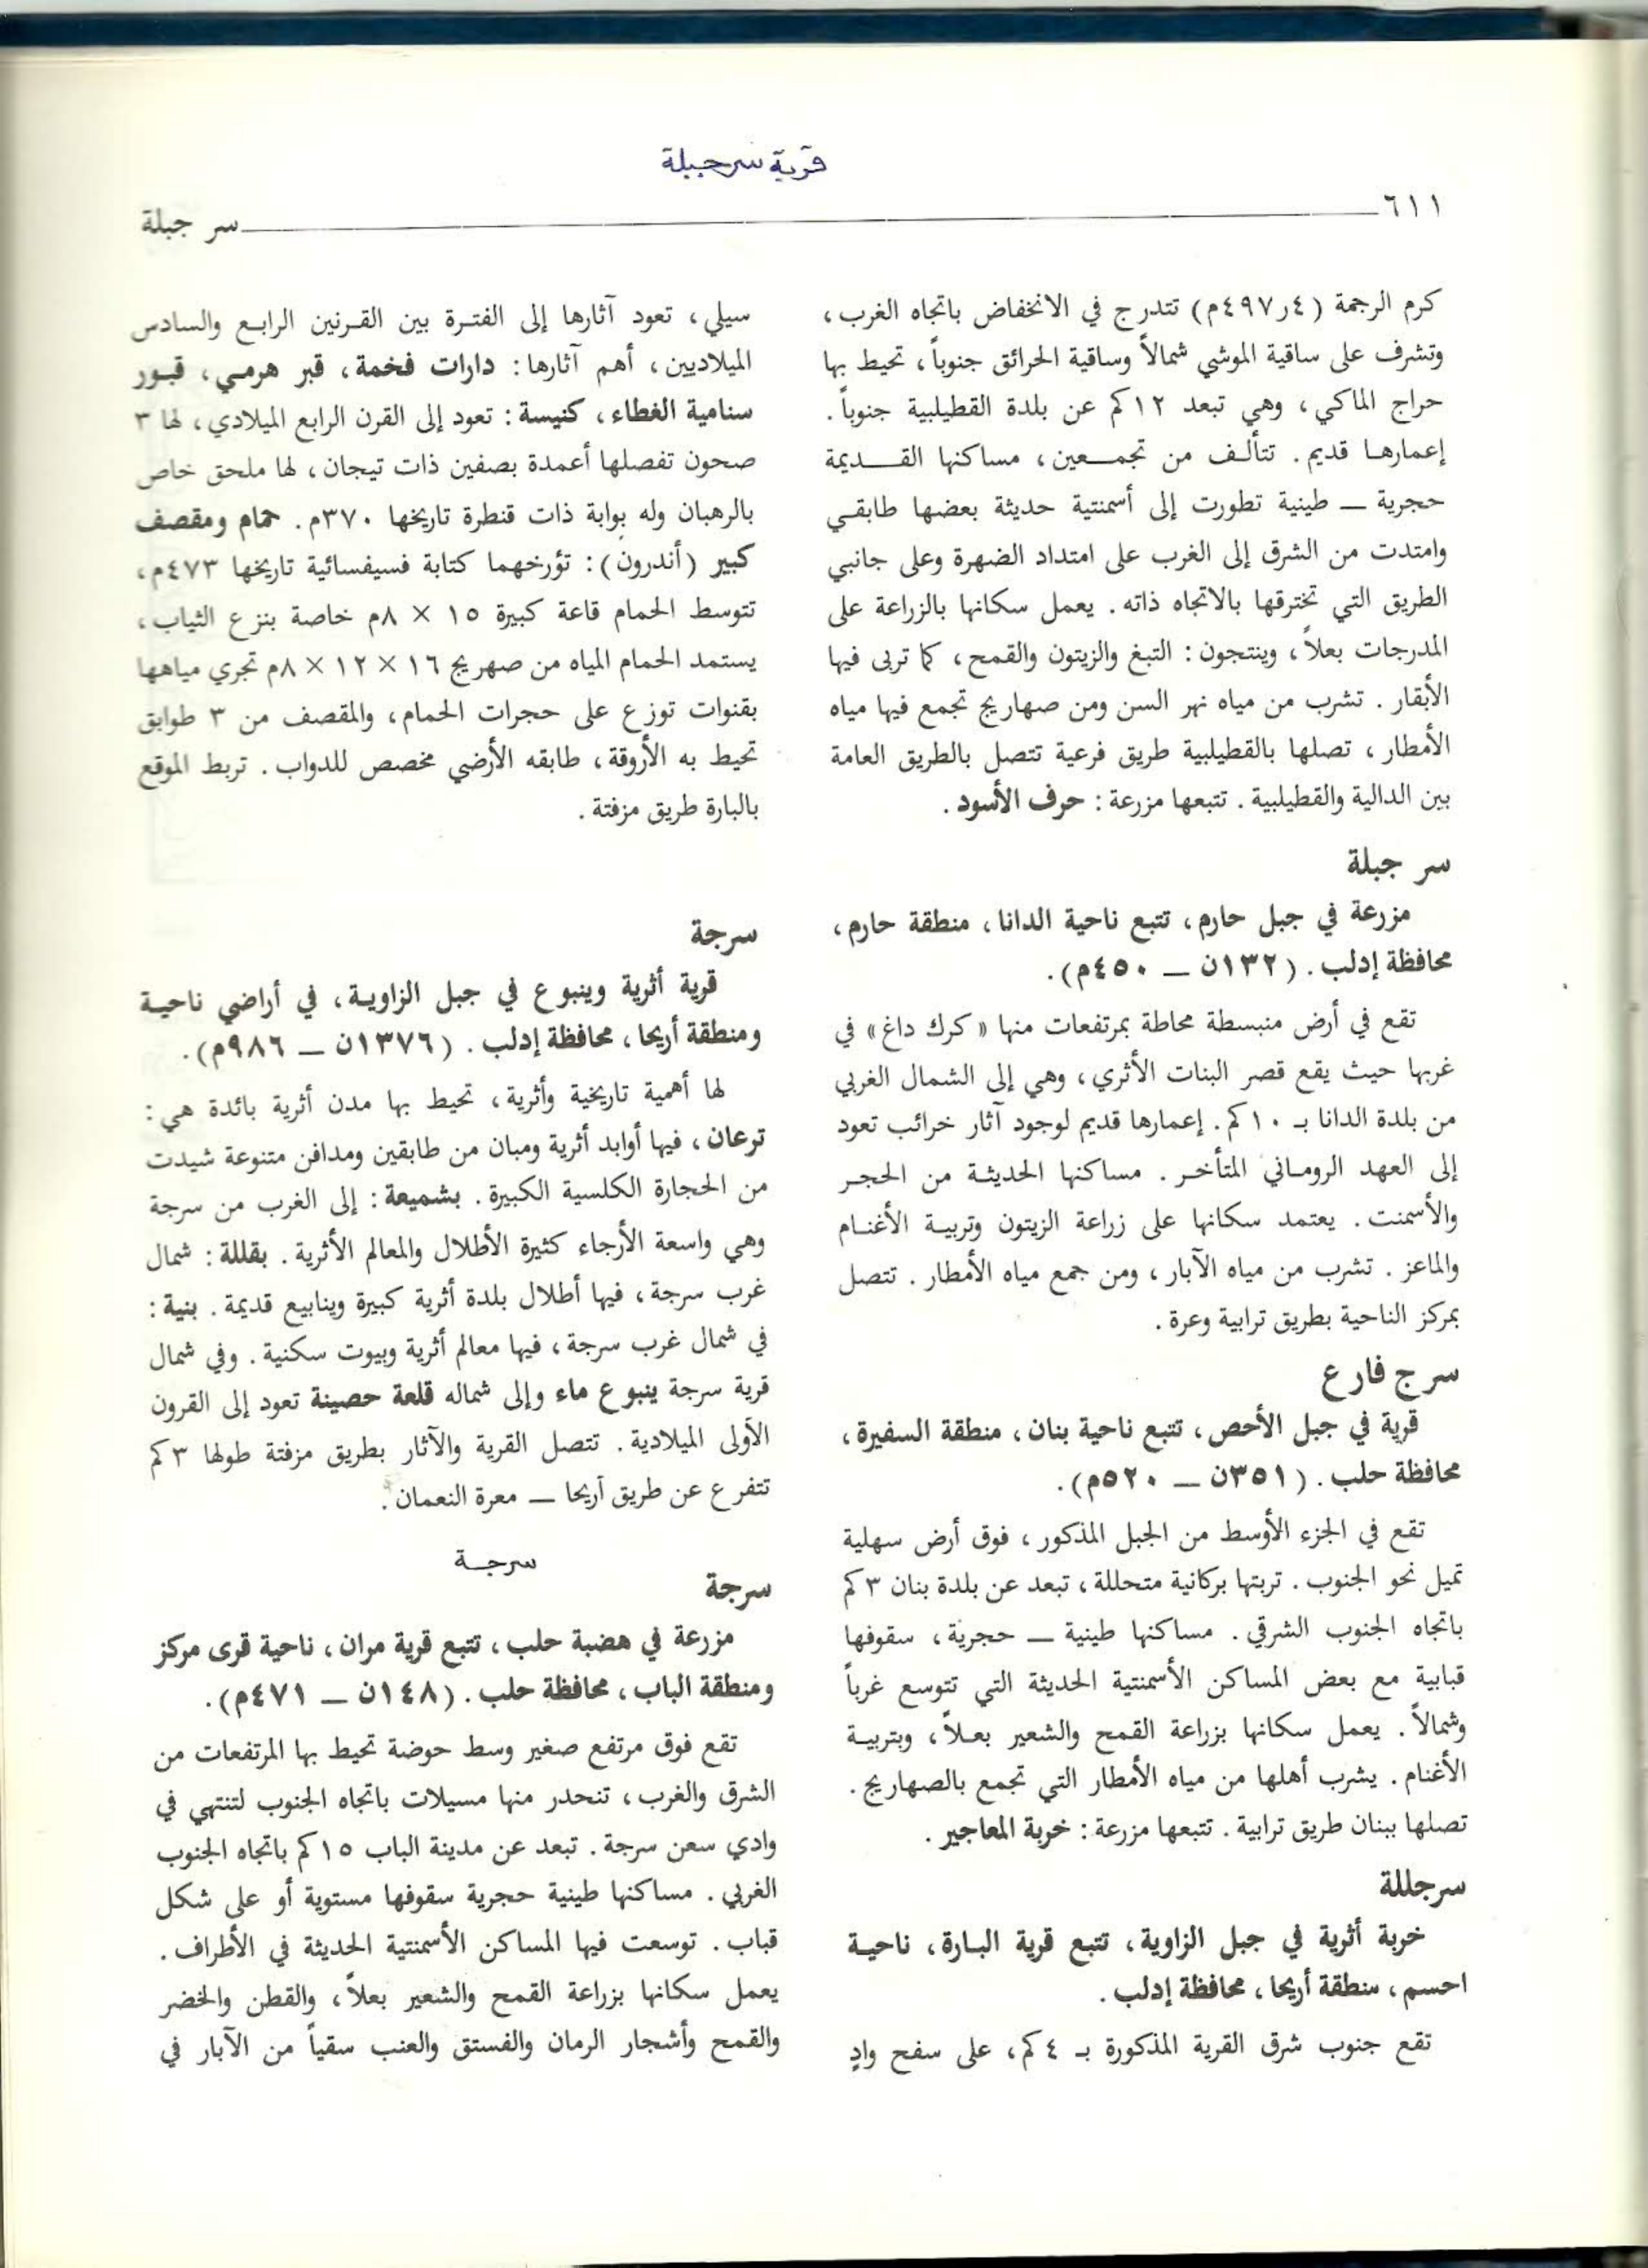 قرية سرجبلة
٦١١
سر جبلة
كرم الرجمة (٤ر٤٩٧م) تتدرج في الانخفاض باتجاه الغرب،
وتشرف على ساقية الموشي شمالاً وساقية الحرائق جنوباً، تحيط بها
حراج الماكي، وهي تبعد ١٢كم عن بلدة القطيلبية جنوباً.
إعمارها قديم. تتألف من تجمعين، مساكنها القديمة
حجرية — طينية تطورت إلى أسمنتية حديثة بعضها طابقي
وامتدت من الشرق إلى الغرب على امتداد الضهرة وعلى جانبي
الطريق التي تخترقها بالاتجاه ذاته. يعمل سكانها بالزراعة على
المدرجات بعلاً، وينتجون: التبغ والزيتون والقمح، كما تربى فيها
الأبقار. تشرب من مياه نهر السن ومن صهاريج تجمع فيها مياه
الأمطار، تصلها بالقطيلبية طريق فرعية تتصل بالطريق العامة
بين الدالية والقطيلبية. تتبعها مزرعة: حرف الأسود.
سر جبلة
مزرعة في جبل حارم، تتبع ناحية الدانا، منطقة حارم،
محافظة إدلب. (١٣٢ن — ٤٥٠م).
تقع في أرض منبسطة محاطة بمرتفعات منها «كرك داغ» في
غربها حيث يقع قصر البنات الأثري، وهي إلى الشمال الغربي
من بلدة الدانا بـ ١٠كم. إعمارها قديم لوجود آثار خرائب تعود
إلى العهد الروماني المتأخر. مساكنها الحديثة من الحجر
والأسمنت. يعتمد سكانها على زراعة الزيتون وتربية الأغنام
والماعز. تشرب من مياه الآبار، ومن جمع مياه الأمطار. تتصل
بمركز الناحية بطريق ترابية وعرة.
سرج فارع
قرية في جبل الأحص، تتبع ناحية بنان، منطقة السفيرة،
محافظة حلب. (٣٥١ن — ٥٢٠م).
تقع في الجزء الأوسط من الجبل المذكور، فوق أرض سهلية
تميل نحو الجنوب. تربتها بركانية متحللة، تبعد عن بلدة بنان ٣كم
باتجاه الجنوب الشرقي. مساكنها طينية — حجرية، سقوفها
قبابية مع بعض المساكن الأسمنتية الحديثة التي تتوسع غرباً
وشمالاً. يعمل سكانها بزراعة القمح والشعير بعلاً، وبتربية
الأغنام. يشرب أهلها من مياه الأمطار التي تجمع بالصهاريج.
تصلها ببنان طريق ترابية. تتبعها مزرعة: خربة المعاجير.
سرجللة
خربة أثرية في جبل الزاوية، تتبع قرية البارة، ناحية
احسم، منطقة أريحا، محافظة إدلب.
تقع جنوب شرق القرية المذكورة بـ ٤كم، على سفح وادٍ
سيلي، تعود آثارها إلى الفترة بين القرنين الرابع والسادس
الميلاديين، أهم آثارها: دارات فخمة، قبر هرمي، قبور
سنامية الغطاء، كنيسة: تعود إلى القرن الرابع الميلادي، لها ٣
صحون تفصلها أعمدة بصفين ذات تيجان، لها ملحق خاص
بالرهبان وله بوابة ذات قنطرة تاريخها ٣٧٠م. حمام ومقصف
كبير (أندرون): تؤرخهما كتابة فسيفسائية تاريخها ٤٧٣م،
تتوسط الحمام قاعة كبيرة ١٥ × ٨م خاصة بنزع الثياب،
يستمد الحمام المياه من صهريج ١٦ × ١٢ × ٨م تجري مياهها
بقنوات توزع على حجرات الحمام، والمقصف من ٣ طوابق
تحيط به الأروقة، طابقه الأرضي مخصص للدواب. تربط الموقع
بالبارة طريق مزفتة.
سرجة
قرية أثرية وينبوع في جبل الزاوية، في أراضي ناحية
ومنطقة أريحا، محافظة إدلب. (١٣٧٦ن — ٩٨٦م).
لها أهمية تاريخية وأثرية، تحيط بها مدن أثرية بائدة هي:
ترعان، فيها أوابد أثرية ومبان من طابقين ومدافن متنوعة شيدت
من الحجارة الكلسية الكبيرة. بشميعة: إلى الغرب من سرجة
وهي واسعة الأرجاء كثيرة الأطلال والمعالم الأثرية. بقللة: شمال
غرب سرجة، فيها أطلال بلدة أثرية كبيرة وينابيع قديمة. بنية:
في شمال غرب سرجة، فيها معالم أثرية وبيوت سكنية. وفي شمال
قرية سرجة ينبوع ماء وإلى شماله قلعة حصينة تعود إلى القرون
الأولى الميلادية. تتصل القرية والآثار بطريق مزفتة طولها ٣كم
تتفرع عن طريق أريحا — معرة النعمان.
سرجة
سرجة
مزرعة في هضبة حلب، تتبع قرية مران، ناحية قرى مركز
ومنطقة الباب، محافظة حلب. (١٤٨ن — ٤٧١م).
تقع فوق مرتفع صغير وسط حوضة تحيط بها المرتفعات من
الشرق والغرب، تنحدر منها مسيلات باتجاه الجنوب لتنتهي في
وادي سعن سرجة. تبعد عن مدينة الباب ١٥كم باتجاه الجنوب
الغربي. مساكنها طينية حجرية سقوفها مستوية أو على شكل
قباب. توسعت فيها المساكن الأسمنتية الحديثة في الأطراف.
يعمل سكانها بزراعة القمح والشعير بعلاً، والقطن والخضر
والقمح وأشجار الرمان والفستق والعنب سقياً من الآبار في